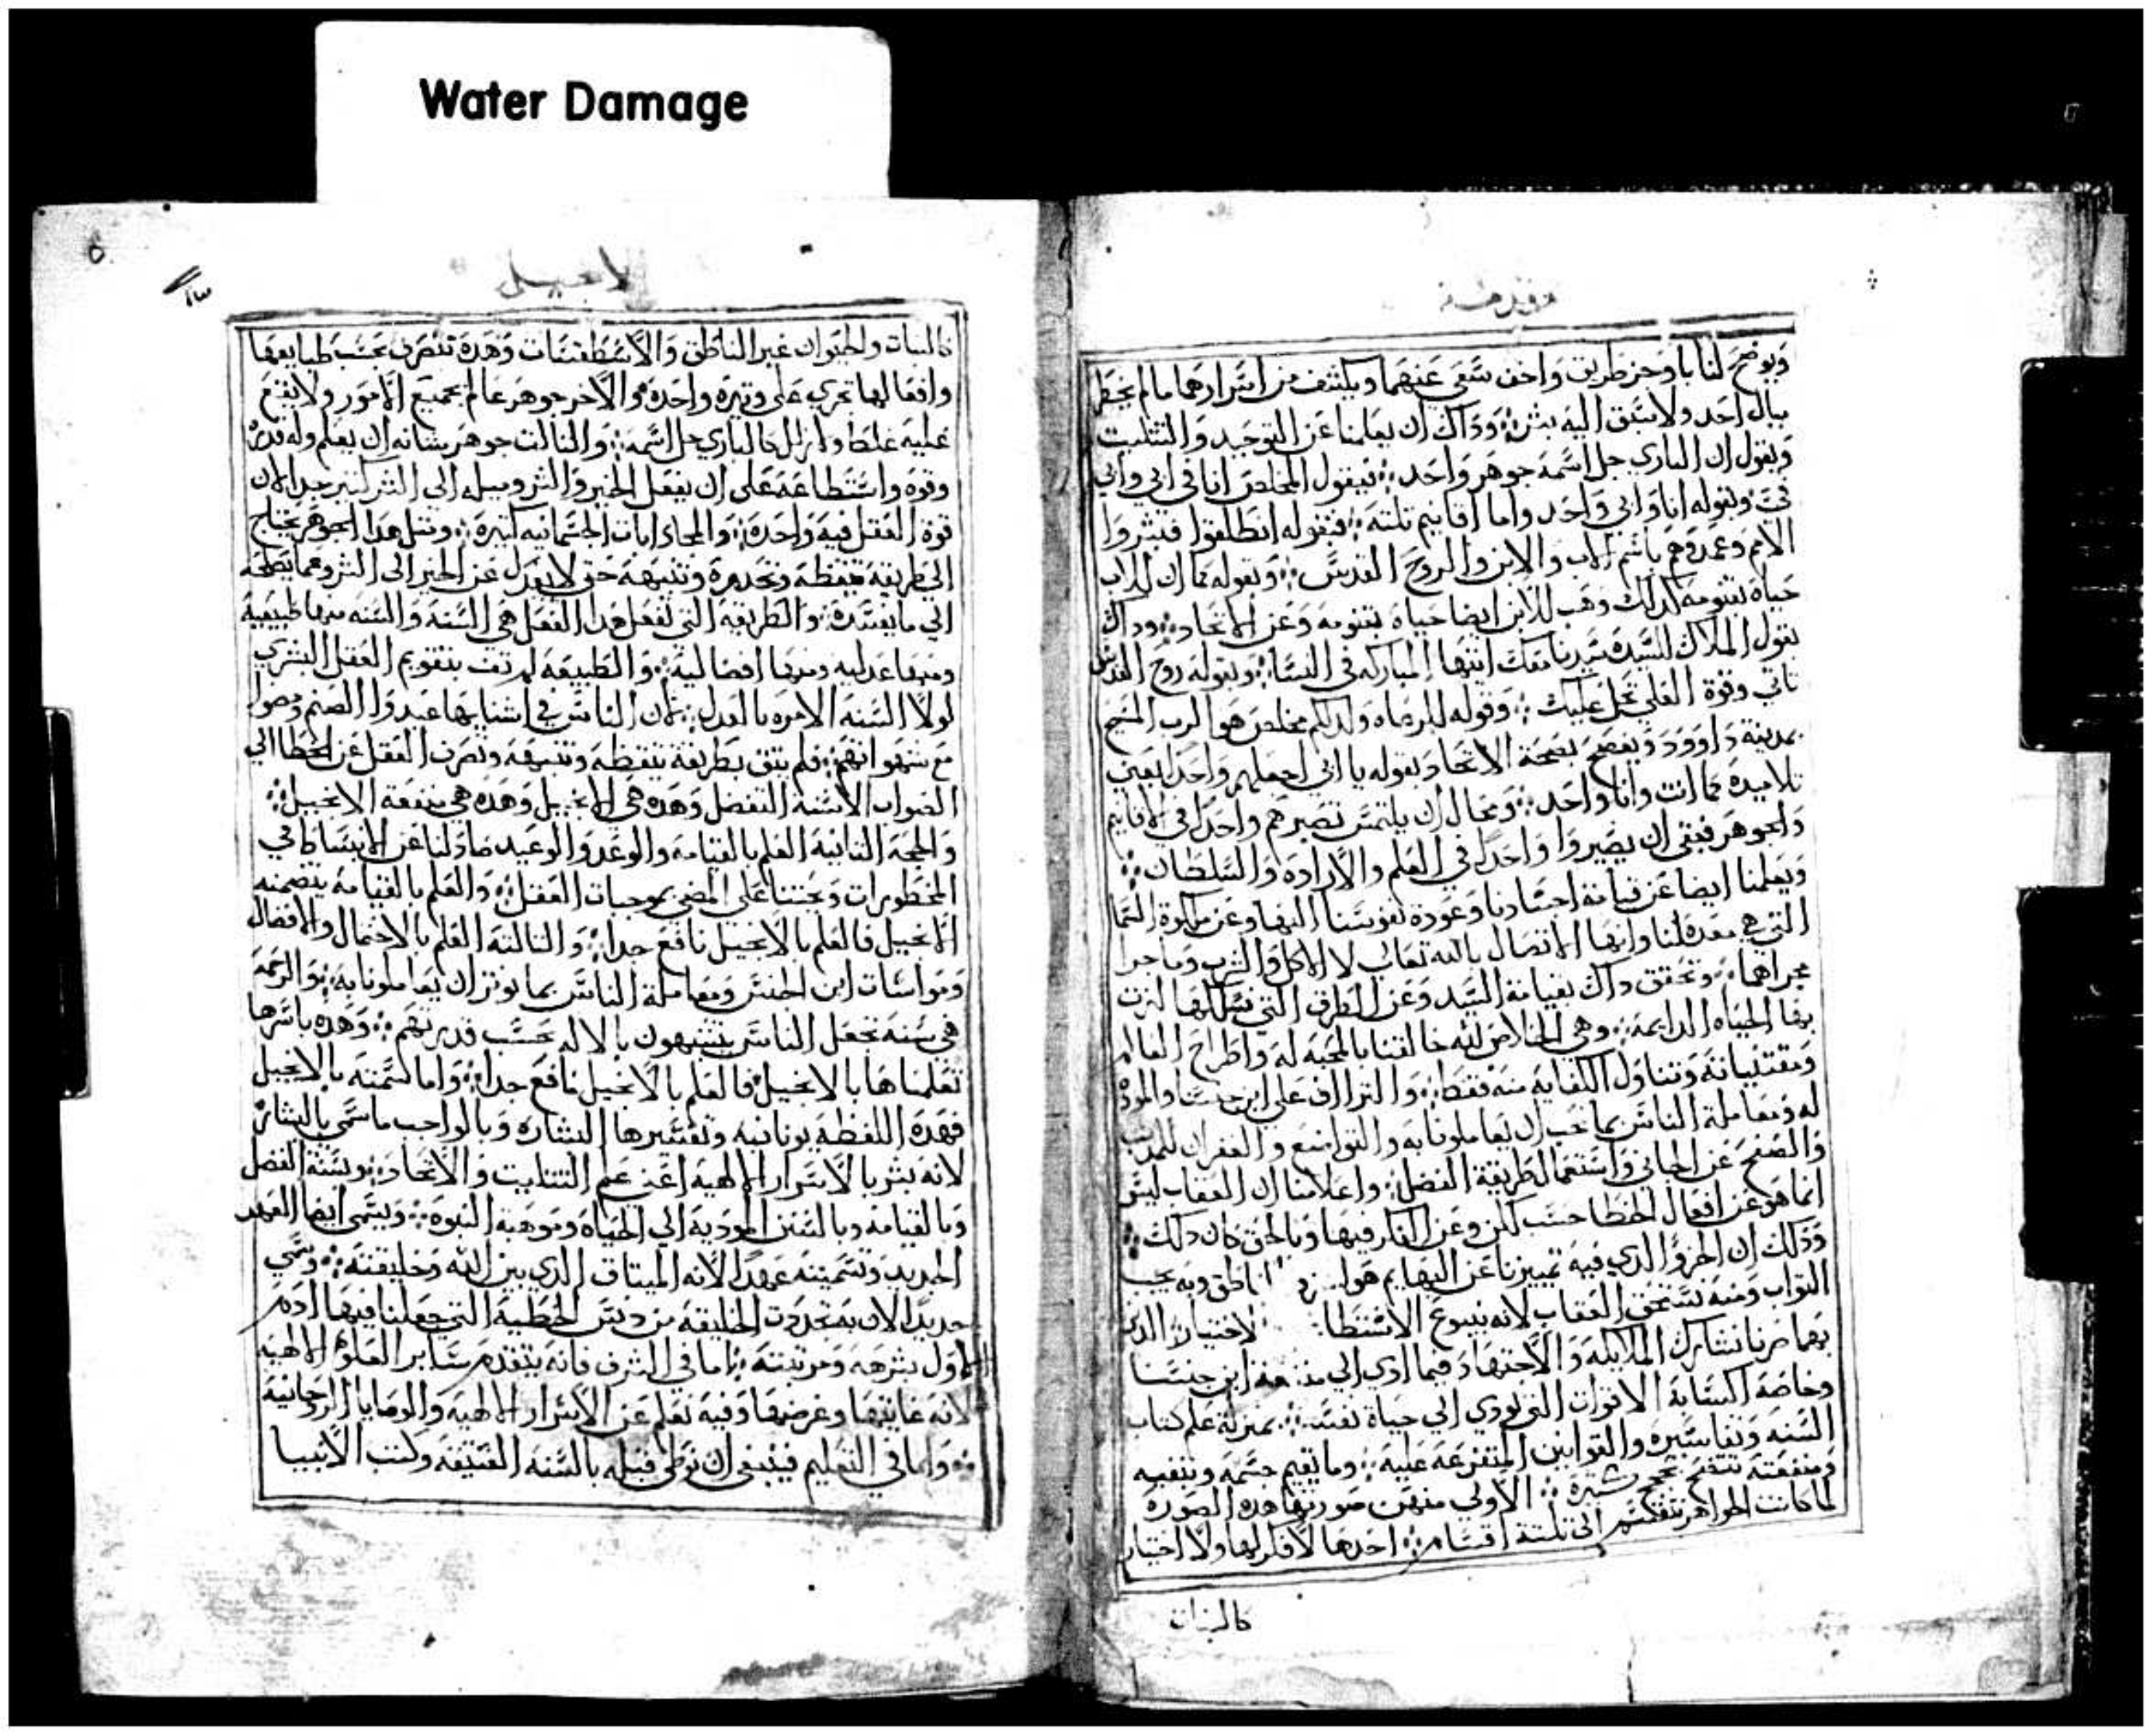 Water Damage
مقدمة
ويوضح لنا باوجز طريق واخف سعي عنهما ويكشف من اسرارهما ما لم يخطر
ببال احد ولا سبق اليه بشر ⁘ وذاك ان يعلمنا عن التوحيد والتثليت
ويقول ان الباري جل اسمه جوهر واحد ⁘ فيقول المخلص انا في ابي وابي
في وبقوله انا وابي واحد واما اقانيم تلته ⁘ فبقوله انطلقوا فبشروا
الامم وعمدوهم باسم الاب والابن والروح القدس ⁘ وبقوله كما ان للاب
حياه بقنومه كدلك وهب للابن ايضا حياة بقنومه وعن الاتحاد ⁘ وداك
بقول الملاك للسيده سيدنا معك ايتها المباركه في النسا ⁘ وبقوله روح القدس
تاتي وقوة العلي تحل عليك ⁘ وقوله للرعاه ولد لكم مخلص هو الرب المسيح
بمدينة داوود ويفصح بصحة الاتحاد بقوله يا ابي اجعلهم واحدا يعني
تلاميده كما انت وانا واحد ⁘ ومحال ان يلتمس تصيرهم واحدا في الاقانيم
والجوهر فبقي ان يصيروا واحدا في العلم والارادة والسلطان ⁘
ويعلمنا ايضا عن قيامة اجسادنا وعودة نفوسنا اليها وعن ملكوة السما
التي هي معده لنا وانها الاتصال بالله تعالى لا الاكل والشرب وما جرا
مجراهما ⁘ وتحقق داك بقيامة السيد وعن الطرق التي نسلكها لنرت
بها الحياه الدايمة ⁘ وهي اخلاص لله خالقنا بالمحبه له واطراح العالم
ومقتنياته وتناول الكفايه منه فقط ⁘ والتراف على ابن جنسنا والموده
له ومعاملة الناس بما نحب ان يعاملونا به والتواضع والغفران للمدنب
والصفح عن الجاني واستعمال طريقة الفضل ⁘ واعلامنا ان العقاب ليس
انما هو عن افعال الخطا حسب لكن وعن الفكر فيها وبالحق كان دلك ⁘
ودلك ان الجزو الدي فيه تمييزنا عن البهايم هو ناطق وبه يجب
التواب ومنه نستحق العقاب لانه ينبوع الاستطا لاختيار الدي
بها صرنا نشارك الملايكه والاجتهاد فيما ادي الى منفعة ابن جنسنا
وخاصة اكتسابة الاقوات التي تودي الى حياة نفسه ⁘ بمنزلة علم كتاب
السنه وتفاسيره والقوانين المتفرعة عليه ⁘ وما يقيم جسمه وينفيه
ومنفعته تتضح بحجج ستة ⁘ الاولي منهن صورتها هده الصوره
لما كانت الجواهر تنقسم الى تلتة اقسام ⁘ احدها لا فكر لها ولا اختيار
كالنبات
الانجيل
كالنبات والحيوان غير الناطق والاسطقسات وهده تتصرف بحسب طبايعها
وافعالها تجري على وتيرة واحده ⁘ والاخر جوهر عالم بجميع الامور ولا يقع
عليه غلط ولا زلل كالباري جل اسمه ⁘ والتالت جوهر شانه ان يعلم وله قدرة
وقوه واستطاعة على ان يفعل الخير والشر وميله الى الشر كتير جدا لان
قوة العقل فيه واحدة ⁘ والمجادبات الجسمانيه كتيرة ⁘ ومتل هدا الجوهر يحتاج
الى طريقه تيقظه وتحدره وتنبهه حتى لا يعدل عن الخير الى الشر وعما يصلحه
الى ما يفسده ⁘ والطريقه التي تفعل هدا الفعل هي السنة والسنه منها طبيعية
ومنها عدليه ومنها افضالية ⁘ والطبيعة لم تف بتقويم العقل البشري
لولا السنه الامره بالعدل ⁘ فان الناس في اتنايها عبدوا الصنم ومضوا
مع شهواتهم ⁘ فلم يبق طريقة تيقظه وتنبهه وتصرف العقل عن الخطا الى
الصواب الا سنة التفضل وهده هي الانجيل وهده هي منفعة الانجيل ⁘
والحجة التانية العلم بالقيامه والوعد والوعيد صاد لنا عن الانبساط في
المحظورات ويحتنا على المضي بموجبات العقل ⁘ والعلم بالقيامة يتضمنه
الانجيل فالعلم بالانجيل نافع جدا ⁘ والتالتة العلم بالاحتمال والافضال
ومواساة ابن الجنس ومعاملة الناس بما نوتر ان يعاملونا به ⁘ والرحمة
هي سنه تجعل الناس يتشبهون بالاله بحسب قدرتهم ⁘ وهده باسرها
تعلمناها بالانجيل فالعلم بالانجيل نافع جدا ⁘ واما تسمته بالانجيل
فهده اللفظه يونانيه وتفسيرها البشاره وبالواجب ما سمي بالبشارة
لانه بشر بالاسرار الالهيه اعني علم التتليت والاتحاد ⁘ وبسنة الفضل
وبالقيامه وبالسنن الموديه الى الحياة وموهبة النبوة ⁘ ويسمى ايضا العهد
الجديد وتسميته عهدا لانه الميتاق الدي بين الله وخليقته ⁘ وسمي
جديدا لان به تجددت الخليقه من دنس الخطية التي جعلنا فيها ادم
الاول بشرهه ومرتبته ⁘ اما في الشرف فانه يتقدم ساير العلوم الالهيه
لانه غايتها وغرضها وفيه تعلم عن الاسرار الالهيه والوصايا الروحانية
⁘ واما في التعليم فينبغي ان توطى قبله بالسنه العتيقه وكتب الانبيا